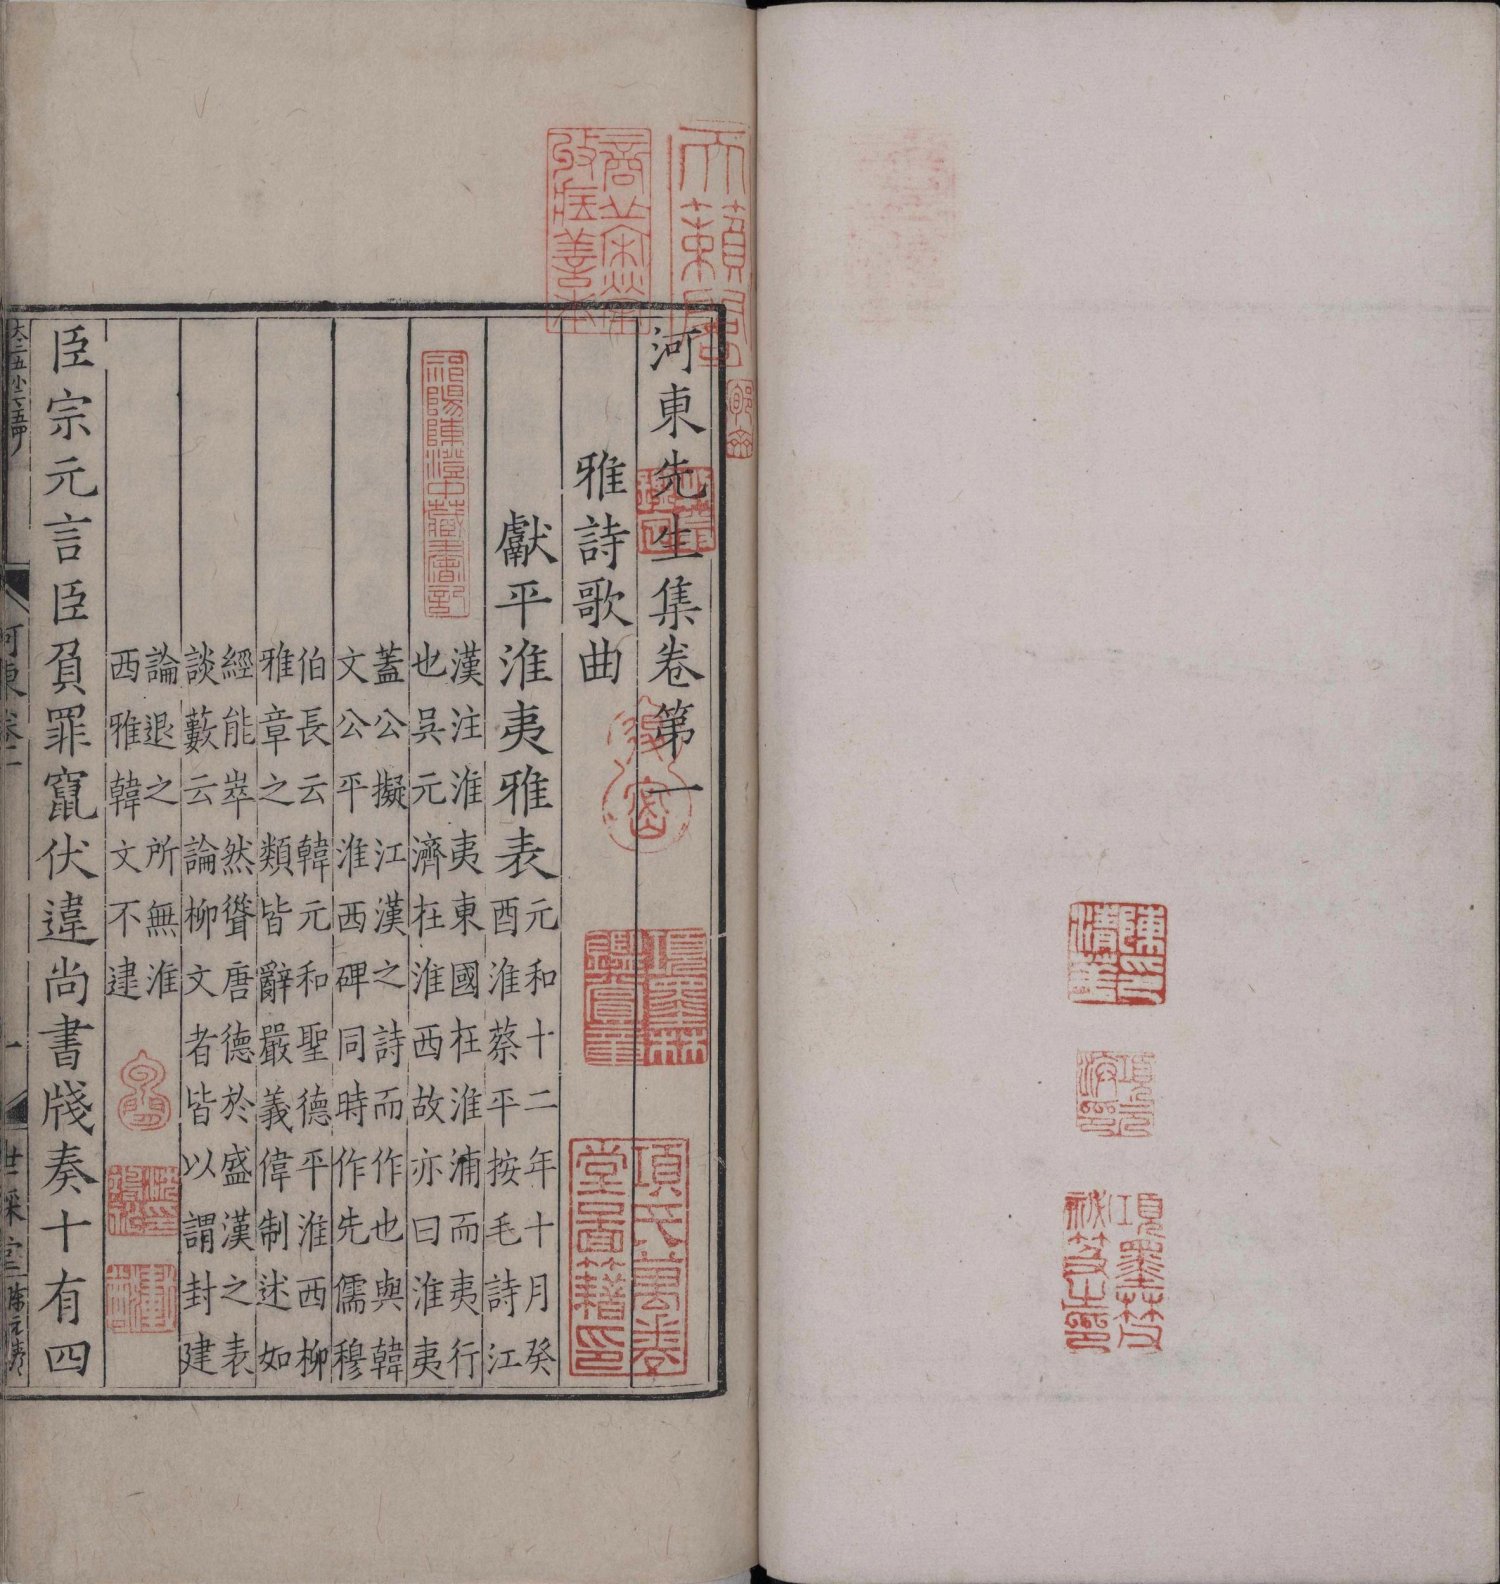 河東先生集卷第一
雅詩歌曲
獻平淮夷雅表
元和十二年十月癸
酉淮蔡平按毛詩江
漢注淮夷東國在淮浦而夷行
也吳元濟在淮西故亦曰淮夷
蓋公擬江漢之詩而作也與韓
文公平淮西碑同時作先儒穆
伯長云韓元和聖德平淮西柳
雅章之類皆辭嚴義偉制述如
經能崒然聳唐德於盛漢之表
談藪云論柳文者皆以謂封建
論退之所無淮
西雅韓文不逮
臣宗元言臣負罪竄伏違尚書牋奏十有四
河東卷一
一
世綵堂
天籟閣
項氏萬卷
堂圖籍印
項墨林
祁陽陳澄中藏書記
陳印
清華